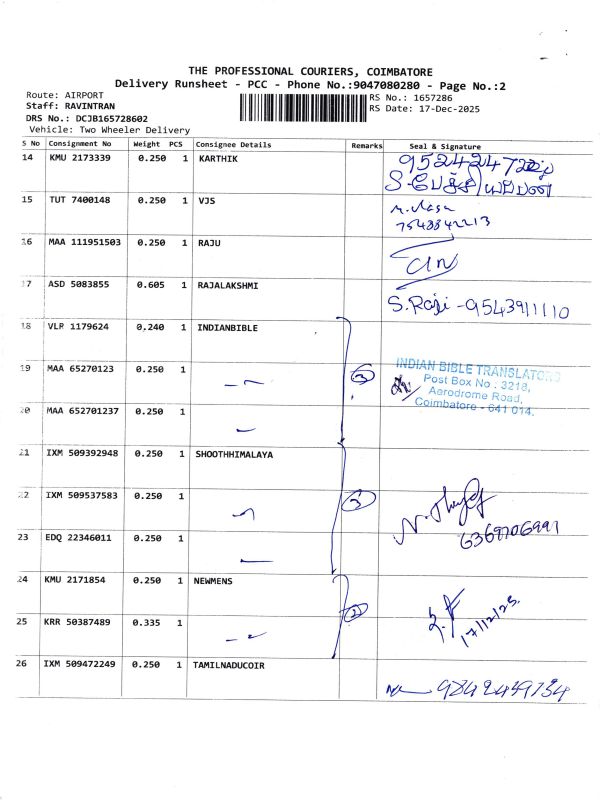 THE PROFESSIONAL COURIERS, COIMBATORE
Delivery Runsheet - PCC - Phone No.:9047080280 - Page No.:2
Route: AIRPORT
RS No.: 1657286
Staff: RAVINTRAN
RS Date: 17-Dec-2025
DRS No.: DCJB165728602
Vehicle: Two Wheeler Delivery
S No Consignment No Weight PCS Consignee Details Remarks Seal & Signature
14 KMU 2173339 0.250 1 KARTHIK
15 TUT 7400148 0.250 1 VJS
7548842213
16 MAA 111951503 0.250 1 RAJU
17 ASD 5083855 0.605 1 RAJALAKSHMI
S. Raji - 9543911110
18 VLR 1179624 0.240 1 INDIANBIBLE
19 MAA 65270123 0.250 1 3
INDIAN BIBLE TRANSLATORS
Post Box No : 3218,
Aerodrome Road,
Coimbatore - 641 014.
20 MAA 652701237 0.250 1
21 IXM 509392948 0.250 1 SHOOTHHIMALAYA
22 IXM 509537583 0.250 1 3
6369706991
23 EDQ 22346011 0.250 1
24 KMU 2171854 0.250 1 NEWMENS
2
17/12/25
25 KRR 50387489 0.335 1
26 IXM 509472249 0.250 1 TAMILNADUCOIR
9842449734